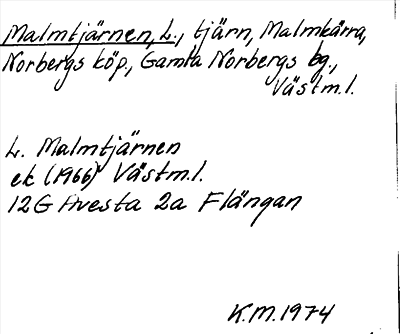 Malmtjärnen, L., tjärn, Malmkärra,
Norbergs köp., Gamla Norbergs bg.,
Västm.l.
L. Malmtjärnen
ek (1966) Västm.l.
12G Avesta 2a Flängan
K.M.1974